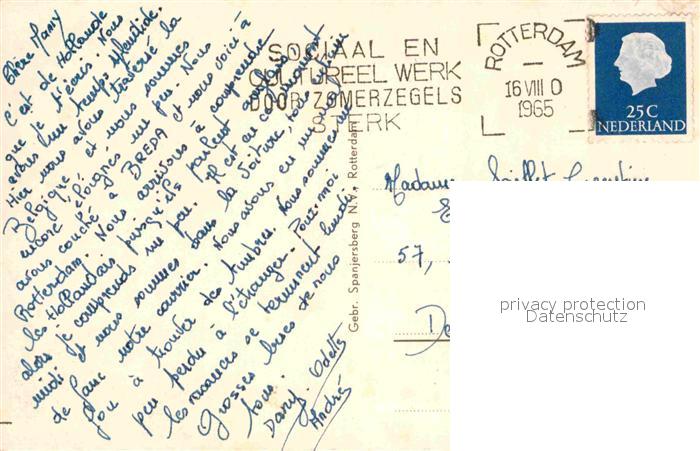 Chère Mamy
C'est de Hollande
que je t'écris. Nous
avons un temps splendide.
Hier nous avons traversé la
Belgique et nous sommes
encore éloignés un peu. Nous
avons couché à BREDA et nous voici à
Rotterdam. Nous arrivons à comprendre
les Hollandais puisqu'ils parlent anglais
alors je comprends un peu. Il est en ce moment
midi et nous sommes dans la voiture,
de faire notre courrier. Nous avons eu un mal
fou à trouver des timbres. Nous sommes un
peu perdu à l'étranger. Pour moi
les vacances se terminent lundi
Grosses bises de nous
tous.
Dany. Odette
André
SOCIAAL EN
CULTUREEL WERK
DOOR ZOMERZEGELS
STERK
ROTTERDAM
16 VIII 0
1965
25C
NEDERLAND
Gebr. Spanjersberg N.V., Rotterdam
Madame
57,
De
privacy protection
Datenschutz